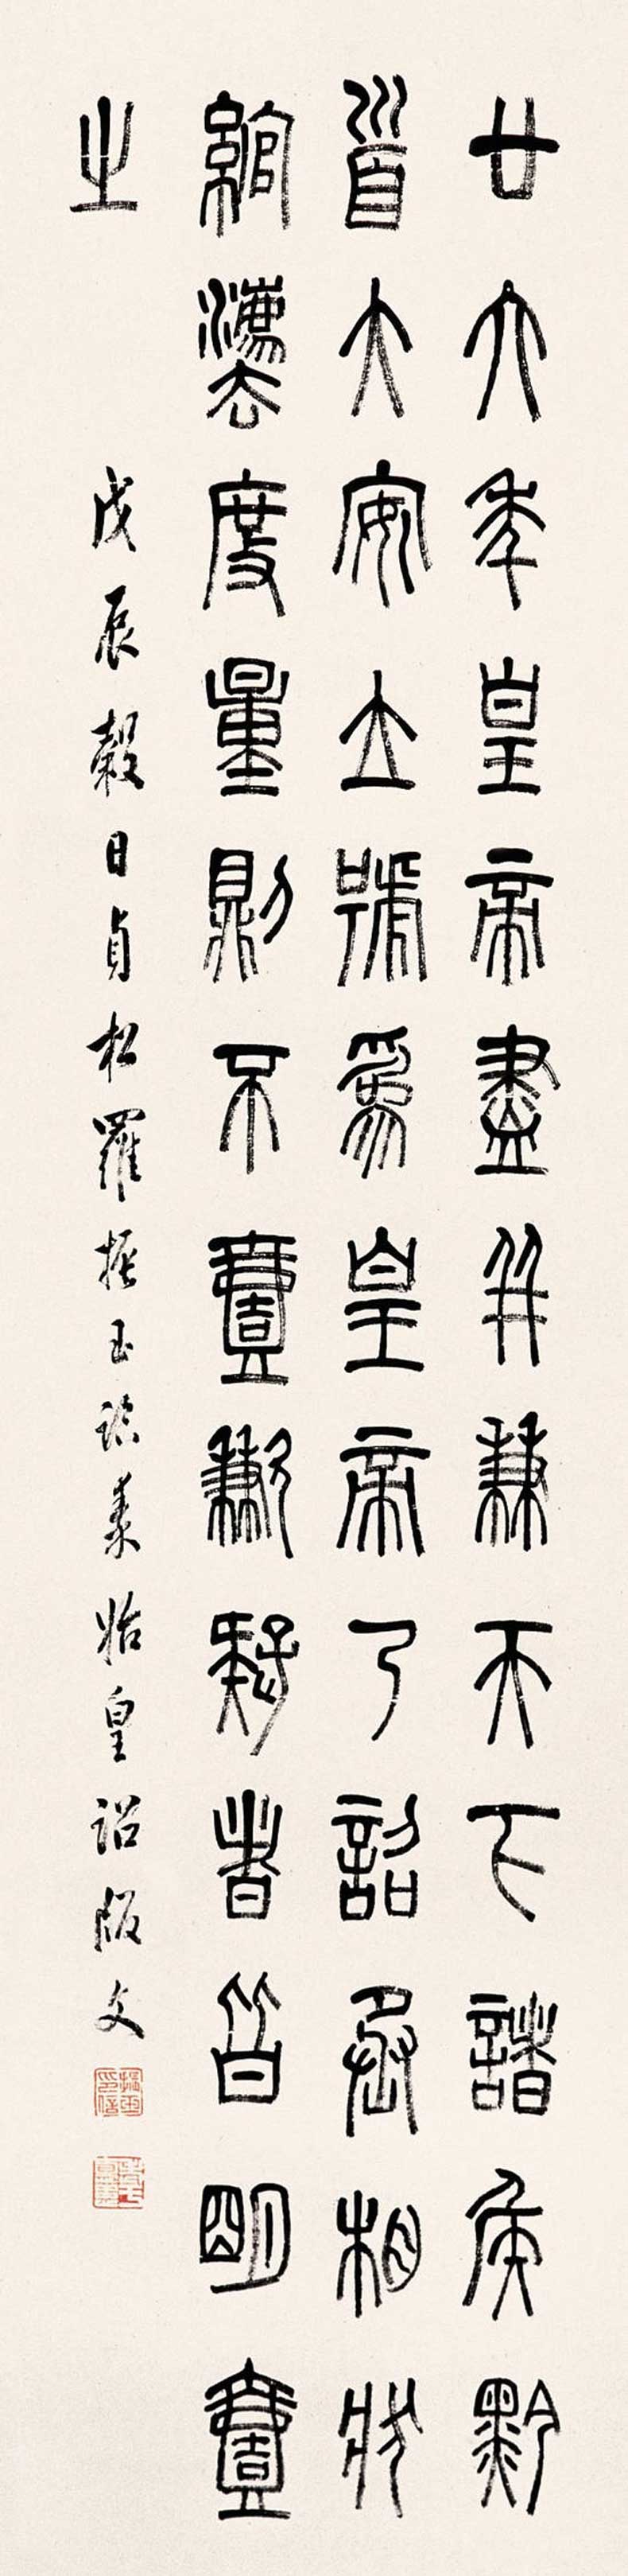 廿六年皇帝盡并兼天下諸矦黔
首大安立號為皇帝乃詔丞相狀
綰灋度量則不壹歉疑者皆明壹
之
戊辰穀日貞松羅振玉臨秦始皇詔版文